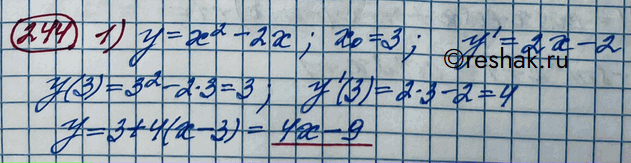 244 1) y = x² - 2x ; x₀ = 3 ; y' = 2x - 2
©reshak.ru
y(3) = 3² - 2·3 = 3 ; y'(3) = 2·3 - 2 = 4
y = 3 + 4(x - 3) = 4x - 9